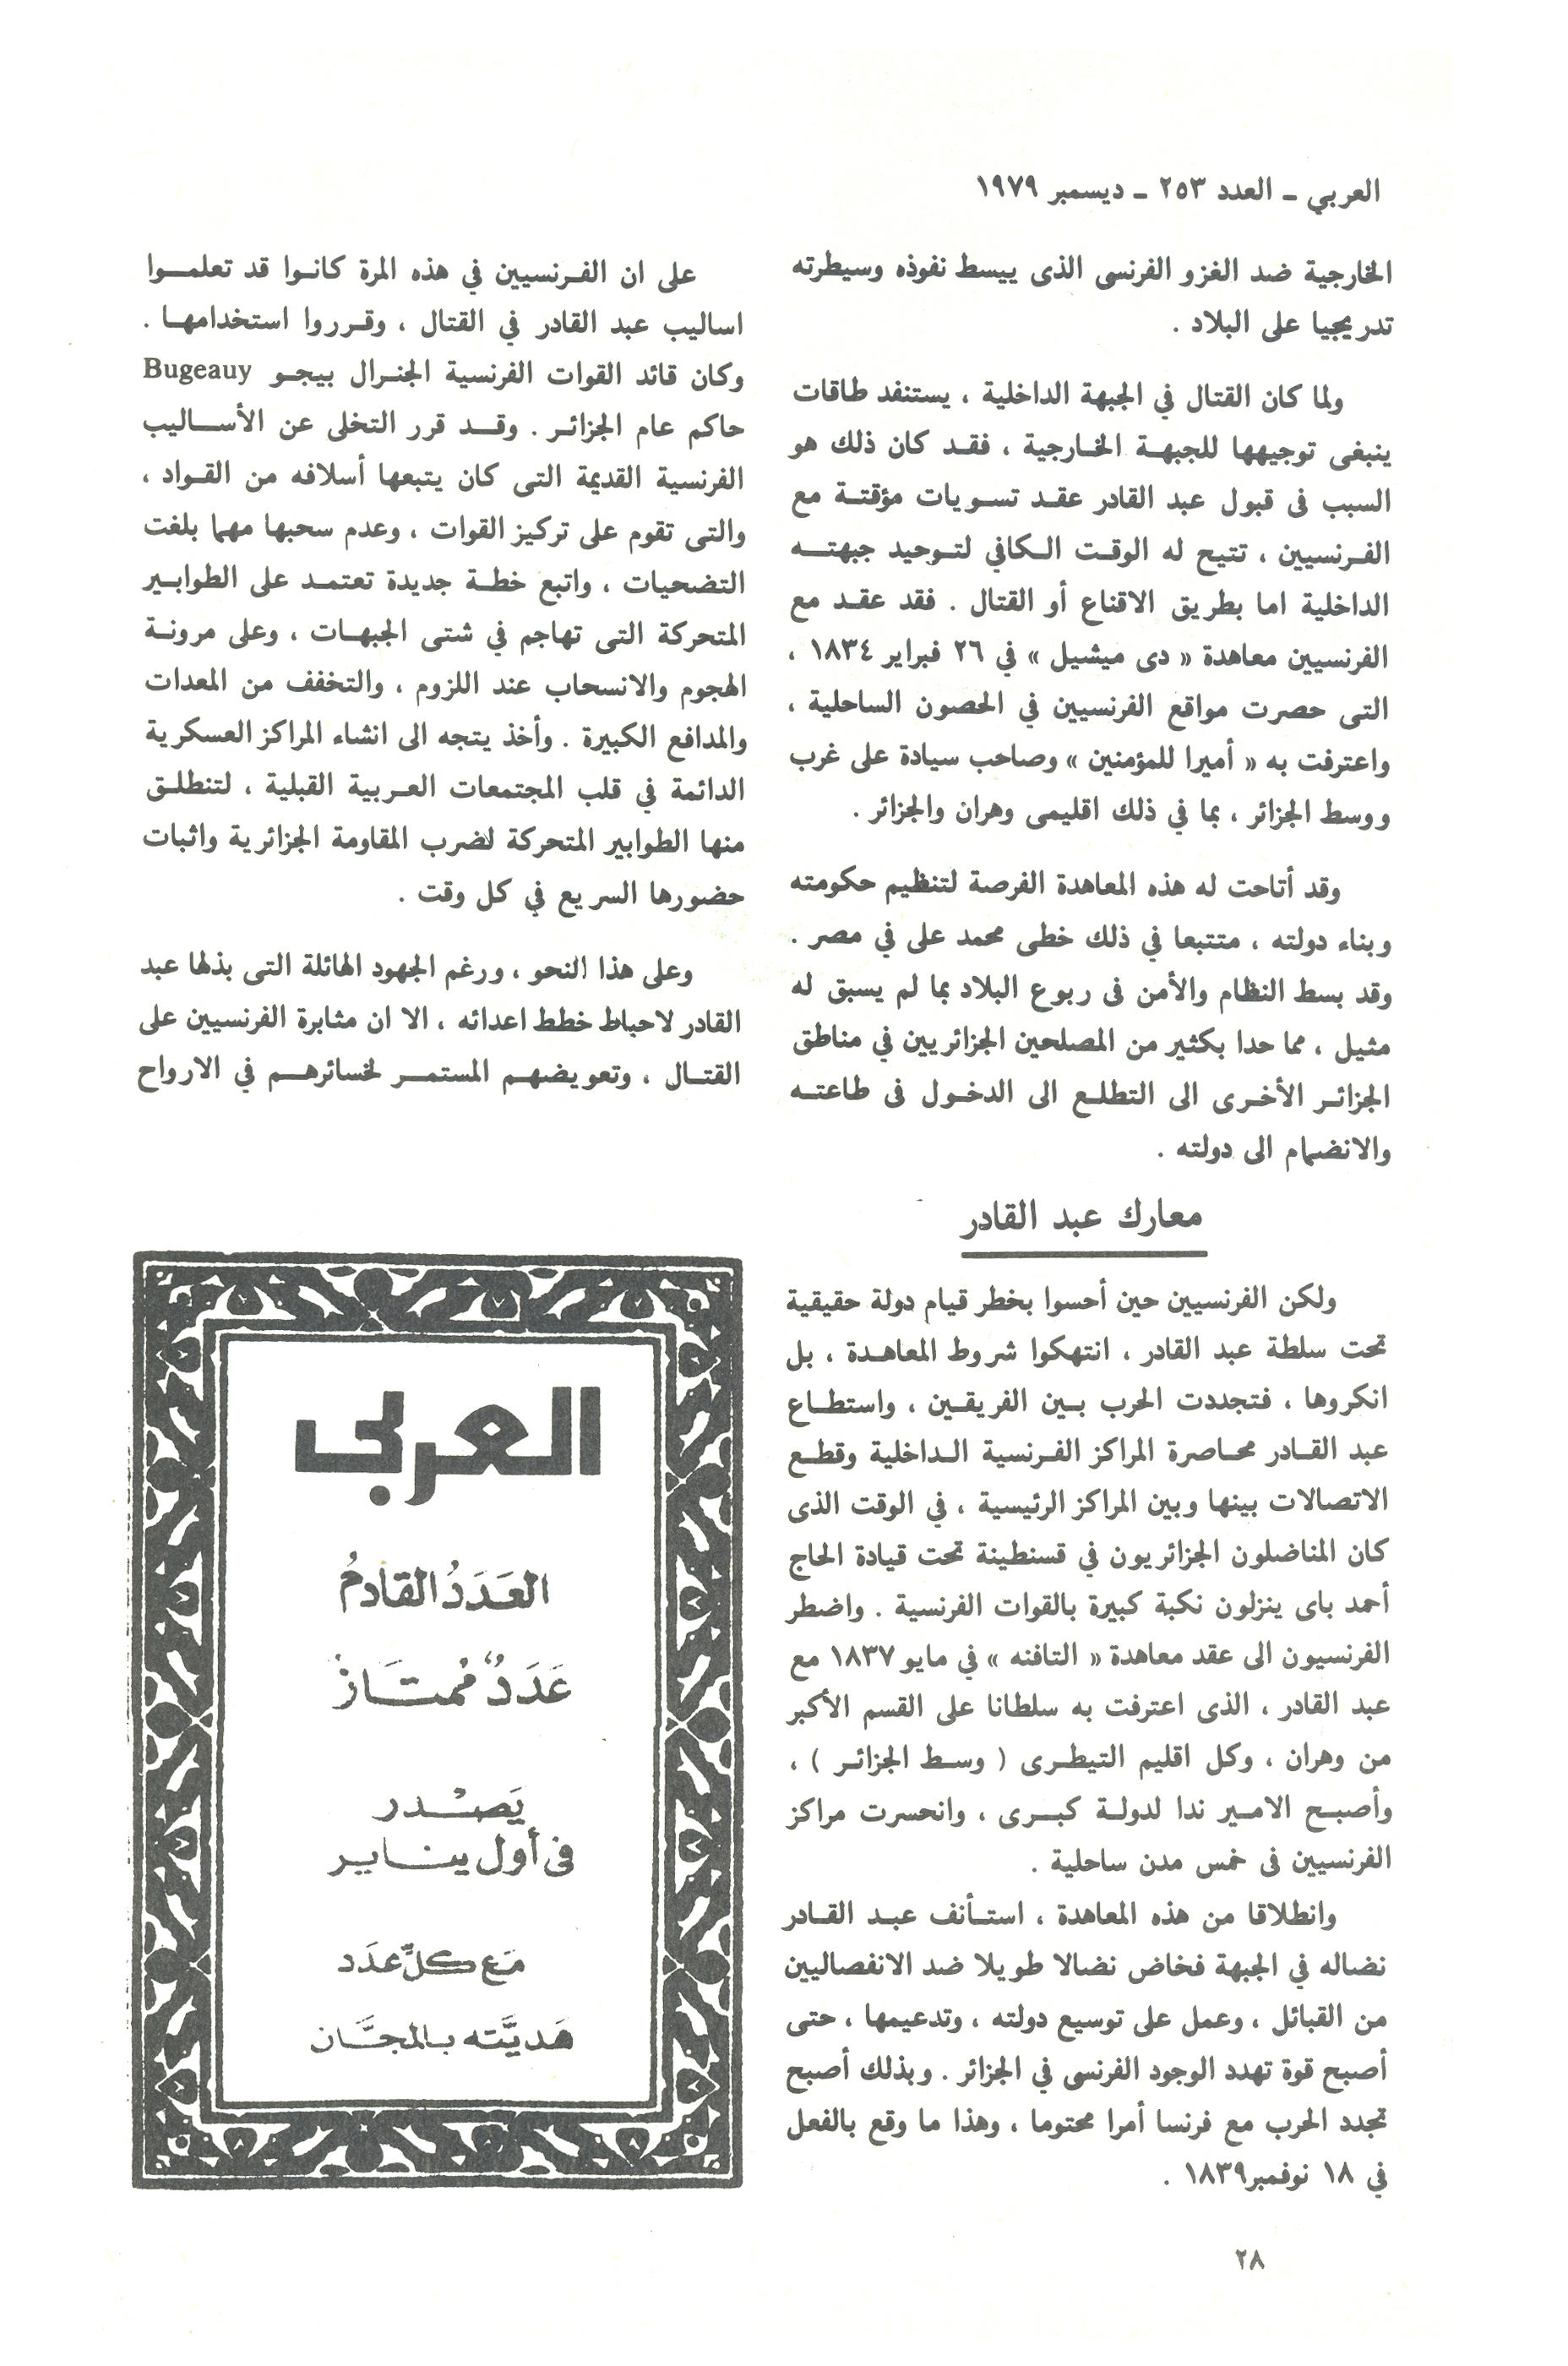 العربي ـ العدد ٢٥٣ ـ ديسمبر ١٩٧٩
الخارجية ضد الغزو الفرنسى الذى يبسط نفوذه وسيطرته
تدريجيا على البلاد .
ولما كان القتال في الجبهة الداخلية ، يستنفد طاقات
ينبغى توجيهها للجبهة الخارجية ، فقد كان ذلك هو
السبب فى قبول عبد القادر عقد تسويات مؤقتة مع
الفرنسيين ، تتيح له الوقت الكافي لتوحيد جبهته
الداخلية اما بطريق الاقناع أو القتال . فقد عقد مع
الفرنسيين معاهدة « دى ميشيل » في ٢٦ فبراير ١٨٣٤ ،
التى حصرت مواقع الفرنسيين في الحصون الساحلية ،
واعترفت به « أميرا للمؤمنين » وصاحب سيادة على غرب
ووسط الجزائر ، بما في ذلك اقليمى وهران والجزائر .
وقد أتاحت له هذه المعاهدة الفرصة لتنظيم حكومته
وبناء دولته ، متتبعا في ذلك خطى محمد على في مصر .
وقد بسط النظام والأمن فى ربوع البلاد بما لم يسبق له
مثيل ، مما حدا بكثير من المصلحين الجزائريين في مناطق
الجزائر الأخرى الى التطلع الى الدخول فى طاعته
والانضمام الى دولته .
معارك عبد القادر
ولكن الفرنسيين حين أحسوا بخطر قيام دولة حقيقية
تحت سلطة عبد القادر ، انتهكوا شروط المعاهدة ، بل
انكروها ، فتجددت الحرب بين الفريقين ، واستطاع
عبد القادر محاصرة المراكز الفرنسية الداخلية وقطع
الاتصالات بينها وبين المراكز الرئيسية ، في الوقت الذى
كان المناضلون الجزائريون في قسنطينة تحت قيادة الحاج
أحمد باى ينزلون نكبة كبيرة بالقوات الفرنسية . واضطر
الفرنسيون الى عقد معاهدة « التافنه » في مايو ١٨٣٧ مع
عبد القادر ، الذى اعترفت به سلطانا على القسم الأكبر
من وهران ، وكل اقليم التيطرى ( وسط الجزائر ) ،
وأصبح الامير ندا لدولة كبرى ، وانحسرت مراكز
الفرنسيين فى خمس مدن ساحلية .
وانطلاقا من هذه المعاهدة ، استأنف عبد القادر
نضاله في الجبهة فخاض نضالا طويلا ضد الانفصاليين
من القبائل ، وعمل على توسيع دولته ، وتدعيمها ، حتى
أصبح قوة تهدد الوجود الفرنسى في الجزائر . وبذلك أصبح
تجدد الحرب مع فرنسا أمرا محتوما ، وهذا ما وقع بالفعل
في ١٨ نوفمبر ١٨٣٩ .
على ان الفرنسيين في هذه المرة كانوا قد تعلموا
اساليب عبد القادر في القتال ، وقرروا استخدامها .
وكان قائد القوات الفرنسية الجنرال بيجو Bugeauy
حاكم عام الجزائر . وقد قرر التخلى عن الأساليب
الفرنسية القديمة التى كان يتبعها أسلافه من القواد ،
والتى تقوم على تركيز القوات ، وعدم سحبها مهما بلغت
التضحيات ، واتبع خطة جديدة تعتمد على الطوابير
المتحركة التى تهاجم في شتى الجبهات ، وعلى مرونة
الهجوم والانسحاب عند اللزوم ، والتخفف من المعدات
والمدافع الكبيرة . وأخذ يتجه الى انشاء المراكز العسكرية
الدائمة في قلب المجتمعات العربية القبلية ، لتنطلق
منها الطوابير المتحركة لضرب المقاومة الجزائرية واثبات
حضورها السريع في كل وقت .
وعلى هذا النحو ، ورغم الجهود الهائلة التى بذلها عبد
القادر لاحباط خطط اعدائه ، الا ان مثابرة الفرنسيين على
القتال ، وتعويضهم المستمر لخسائرهم في الارواح
العربى
العَدَدُ القادمُ
عَدَدٌ مُمتَازٌ
يَصْدر
فى أول يناير
مَع كلّ عدَد
هَديَّته بالمجَّان
٢٨